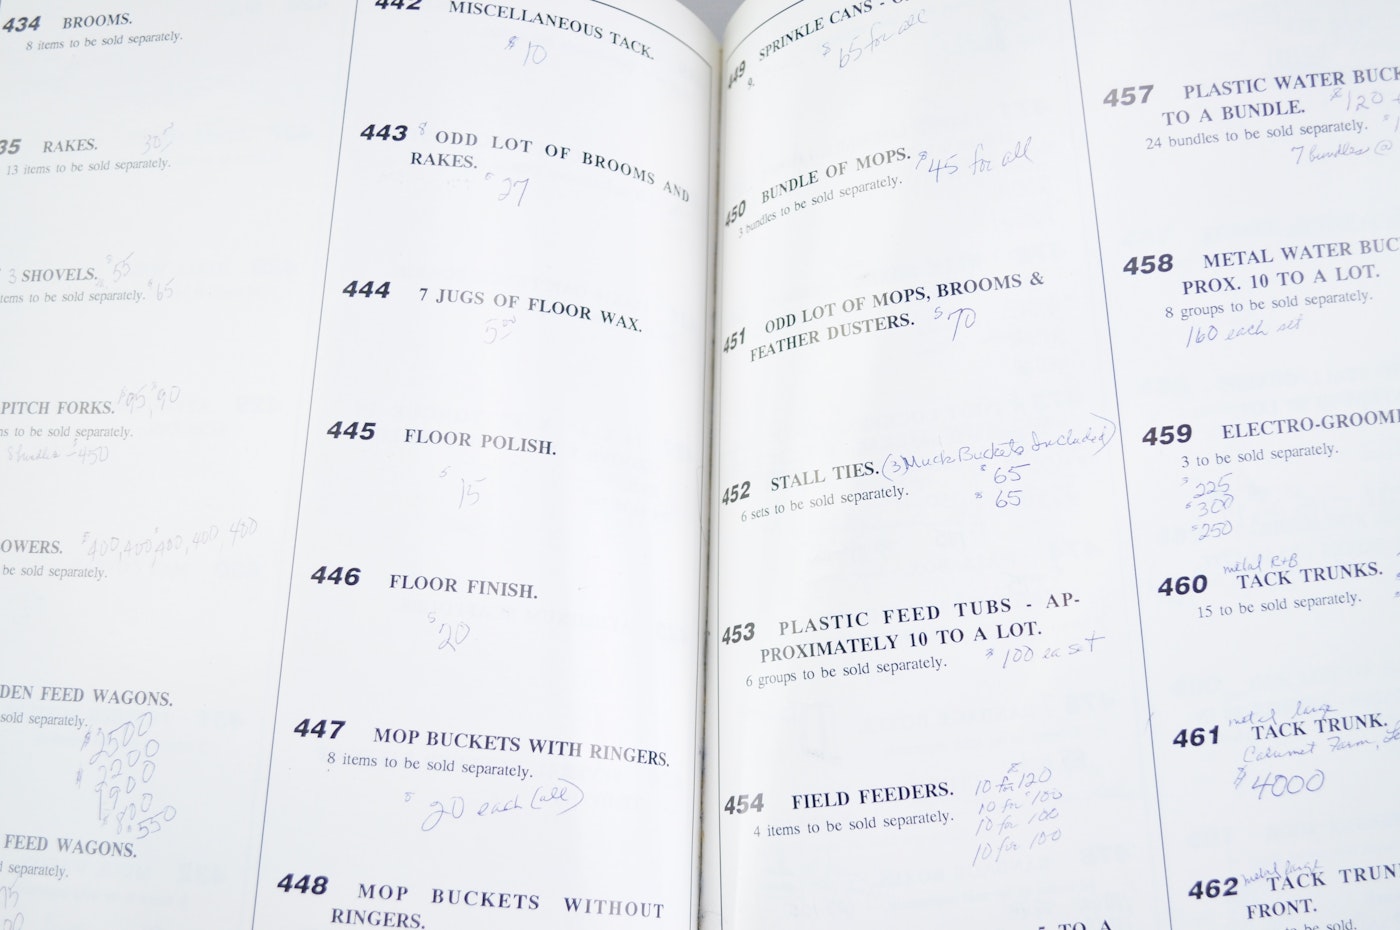 434 BROOMS.
8 items to be sold separately.
35 RAKES. 30⁵
13 items to be sold separately.
3 SHOVELS. $55
tems to be sold separately. $65
PITCH FORKS. $95, $90
ns to be sold separately.
$450
OWERS. $400, 400, $400, 400, 400
be sold separately.
DEN FEED WAGONS.
sold separately.
$2500
$2200
1900
$550
FEED WAGONS.
separately.
442 MISCELLANEOUS TACK.
$10
443 8 ODD LOT OF BROOMS AND
RAKES. $27
444 7 JUGS OF FLOOR WAX.
5⁰⁰
445 FLOOR POLISH.
$15
446 FLOOR FINISH.
$20
447 MOP BUCKETS WITH RINGERS.
8 items to be sold separately.
$20 each (all)
448 MOP BUCKETS WITHOUT
RINGERS.
449 SPRINKLE CANS -
9. $65 for all
450 BUNDLE OF MOPS. $45 for all
3 bundles to be sold separately.
451 ODD LOT OF MOPS, BROOMS &
FEATHER DUSTERS. $70
452 STALL TIES. (3) Muck Buckets Included)
6 sets to be sold separately. $65
$65
453 PLASTIC FEED TUBS - AP-
PROXIMATELY 10 TO A LOT.
6 groups to be sold separately. $100 ea set
454 FIELD FEEDERS. 10 for $120
4 items to be sold separately. 10 for $100
10 for 100
10 for 100
TO A
457 PLASTIC WATER BUCK
TO A BUNDLE. $120
24 bundles to be sold separately.
7 bundles @
458 METAL WATER BUC
PROX. 10 TO A LOT.
8 groups to be sold separately.
160 each set
459 ELECTRO-GROOM
3 to be sold separately.
$225
$300
$250
metal R+B
460 TACK TRUNKS.
15 to be sold separately.
metal large
461 TACK TRUNK.
Calumet Farm,
$4000
metal large
462 TACK TRUN
FRONT.
be sold.